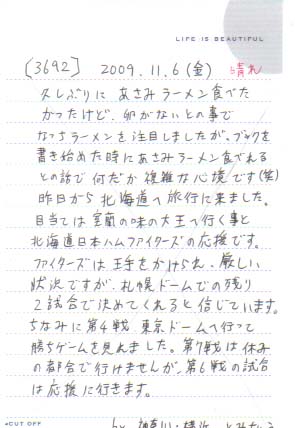 LIFE IS BEAUTIFUL
[3692] 2009.11.6(金) 晴れ
久しぶりに あさみラーメン食べた
かったけど、卵がないとの事で
なっちラーメンを注目しましたが、ブックを
書き始めた時にあさみラーメン食べれる
との話で何だか複雑な心境です(笑)
昨日から北海道へ旅行に来ました。
目当ては室蘭の味の大王へ行く事と
北海道日本ハムファイターズの応援です。
ファイターズは王手をかけられ、厳しい
状況ですが、札幌ドームでの残り
2試合で決めてくれると信じています。
ちなみに第4戦 東京ドームへ行って
勝ちゲームを見れました。第7戦は休み
の都合で行けませんが、第6戦の試合
は応援に行きます。
CUT OFF
by 神奈川・横浜